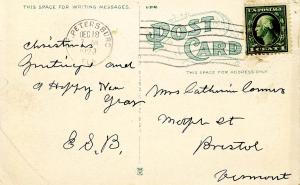 THIS SPACE FOR WRITING MESSAGES.
PETERSBURG
DEC 18
POST
CARD
U.S. POSTAGE
1 CENT 1
THIS SPACE FOR ADDRESS ONLY.
Christmas
Greetings and
a Happy New
Year
E.S.B.
Mrs Catherine
St
Bristol
Vermont